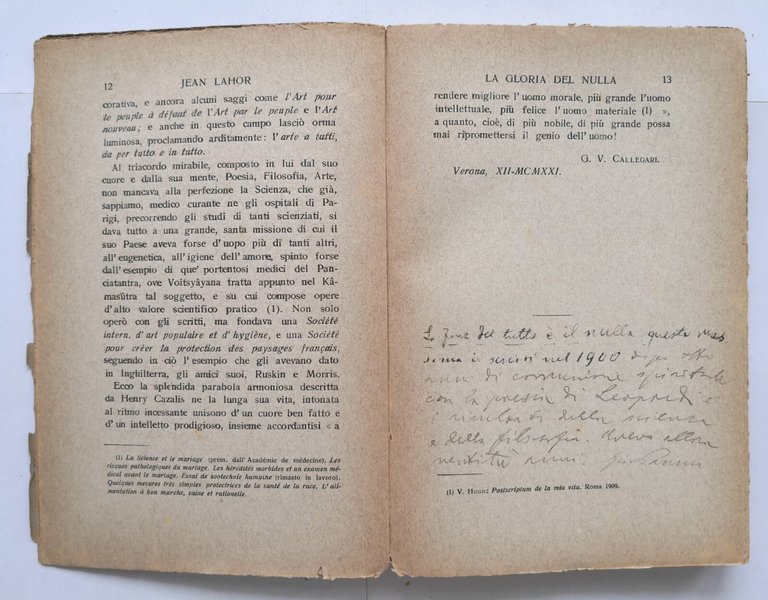 12 JEAN LAHOR
corativa, e ancora alcuni saggi come l'Art pour
le peuple à défaut de l'Art par le peuple e l'Art
nouveau; e anche in questo campo lasciò orma
luminosa, proclamando arditamente: l'arte a tutti,
da per tutto e in tutto.
Al triacordo mirabile, composto in lui dal suo
cuore e dalla sua mente, Poesia, Filosofia, Arte,
non mancava alla perfezione la Scienza, che già,
sappiamo, medico curante ne gli ospitali di Pa-
rigi, precorrendo gli studi di tanti scienziati, si
dava tutto a una grande, santa missione di cui il
suo Paese aveva forse d'uopo più di tanti altri,
all'eugenetica, all'igiene dell'amore, spinto forse
dall'esempio di que' portentosi medici del Pan-
ciatantra, ove Voitsyâyana tratta appunto nel Kâ-
masûtra tal soggetto, e su cui compose opere
d'alto valore scientifico pratico (1). Non solo
operò con gli scritti, ma fondava una Société
intern. d'art populaire et d'hygiène, e una Société
pour créer la protection des paysages français,
seguendo in ciò l'esempio che gli avevano dato
in Inghilterra, gli amici suoi, Ruskin e Morris.
Ecco la splendida parabola armoniosa descritta
da Henry Cazalis ne la lunga sua vita, intonata
al ritmo incessante unisono d'un cuore ben fatto e
d'un intelletto prodigioso, insieme accordantisi « a
(1) La Science et le mariage (prem. dall'Académie de médecine). Les
risques pathologiques du mariage. Les hérédités morbides et un examen mé-
dical avant le mariage. Essai de zootechnie humaine (rimasto in lavoro).
Quelques mesures très simples protectrices de la santé de la race. L'ali-
mentation à bon marche, saine et rationelle.
LA GLORIA DEL NULLA 13
rendere migliore l'uomo morale, più grande l'uomo
intellettuale, più felice l'uomo materiale (1) »,
a quanto, cioè, di più nobile, di più grande possa
mai ripromettersi il genio dell'uomo!
G. V. CALLEGARI.
Verona, XII-MCMXXI.
La fine del tutto è il nulla questa mas
sima scrissi nel 1900 dopo otto
anni di comunione spirituale
con la poesia di Leopardi e
risultati della scienza
e della filosofia. Avevo allora
ventitù anni
(1) V. HUGO: Postscriptum de la mia vita. Roma 1909.